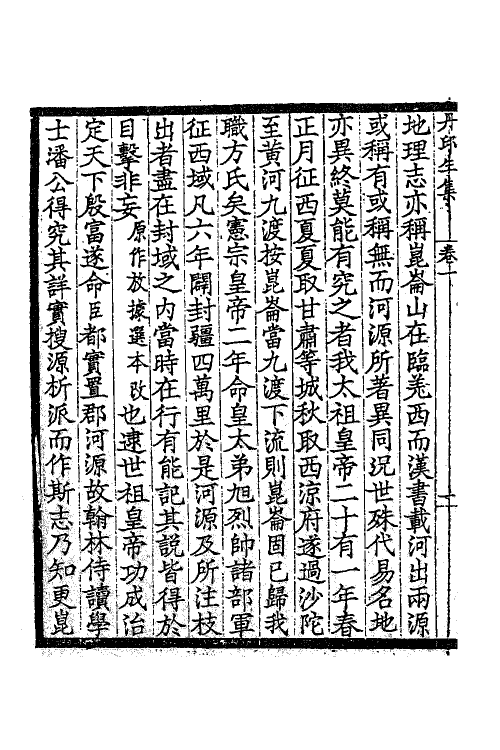 丹邱生集 卷一 十一
地理志亦稱崑崙山在臨羗西而漢書載河出兩源
或稱有或稱無而河源所著異同況世殊代易名地
亦異終莫能有究之者我太祖皇帝二十有一年春
正月征西夏夏取甘肅等城秋取西涼府遂過沙陀
至黃河九渡按崑崙當九渡下流則崑崙固已歸我
職方氏矣憲宗皇帝二年命皇太弟旭烈帥諸部軍
征西域凡六年闢封疆四萬里於是河源及所注枝
出者盡在封域之內當時在行有能記其說皆得於
目擊非妄原作放據選本改也逮世祖皇帝功成治
定天下殷富遂命臣都實置郡河源故翰林侍讀學
士潘公得究其詳實搜源析派而作斯志乃知更崑